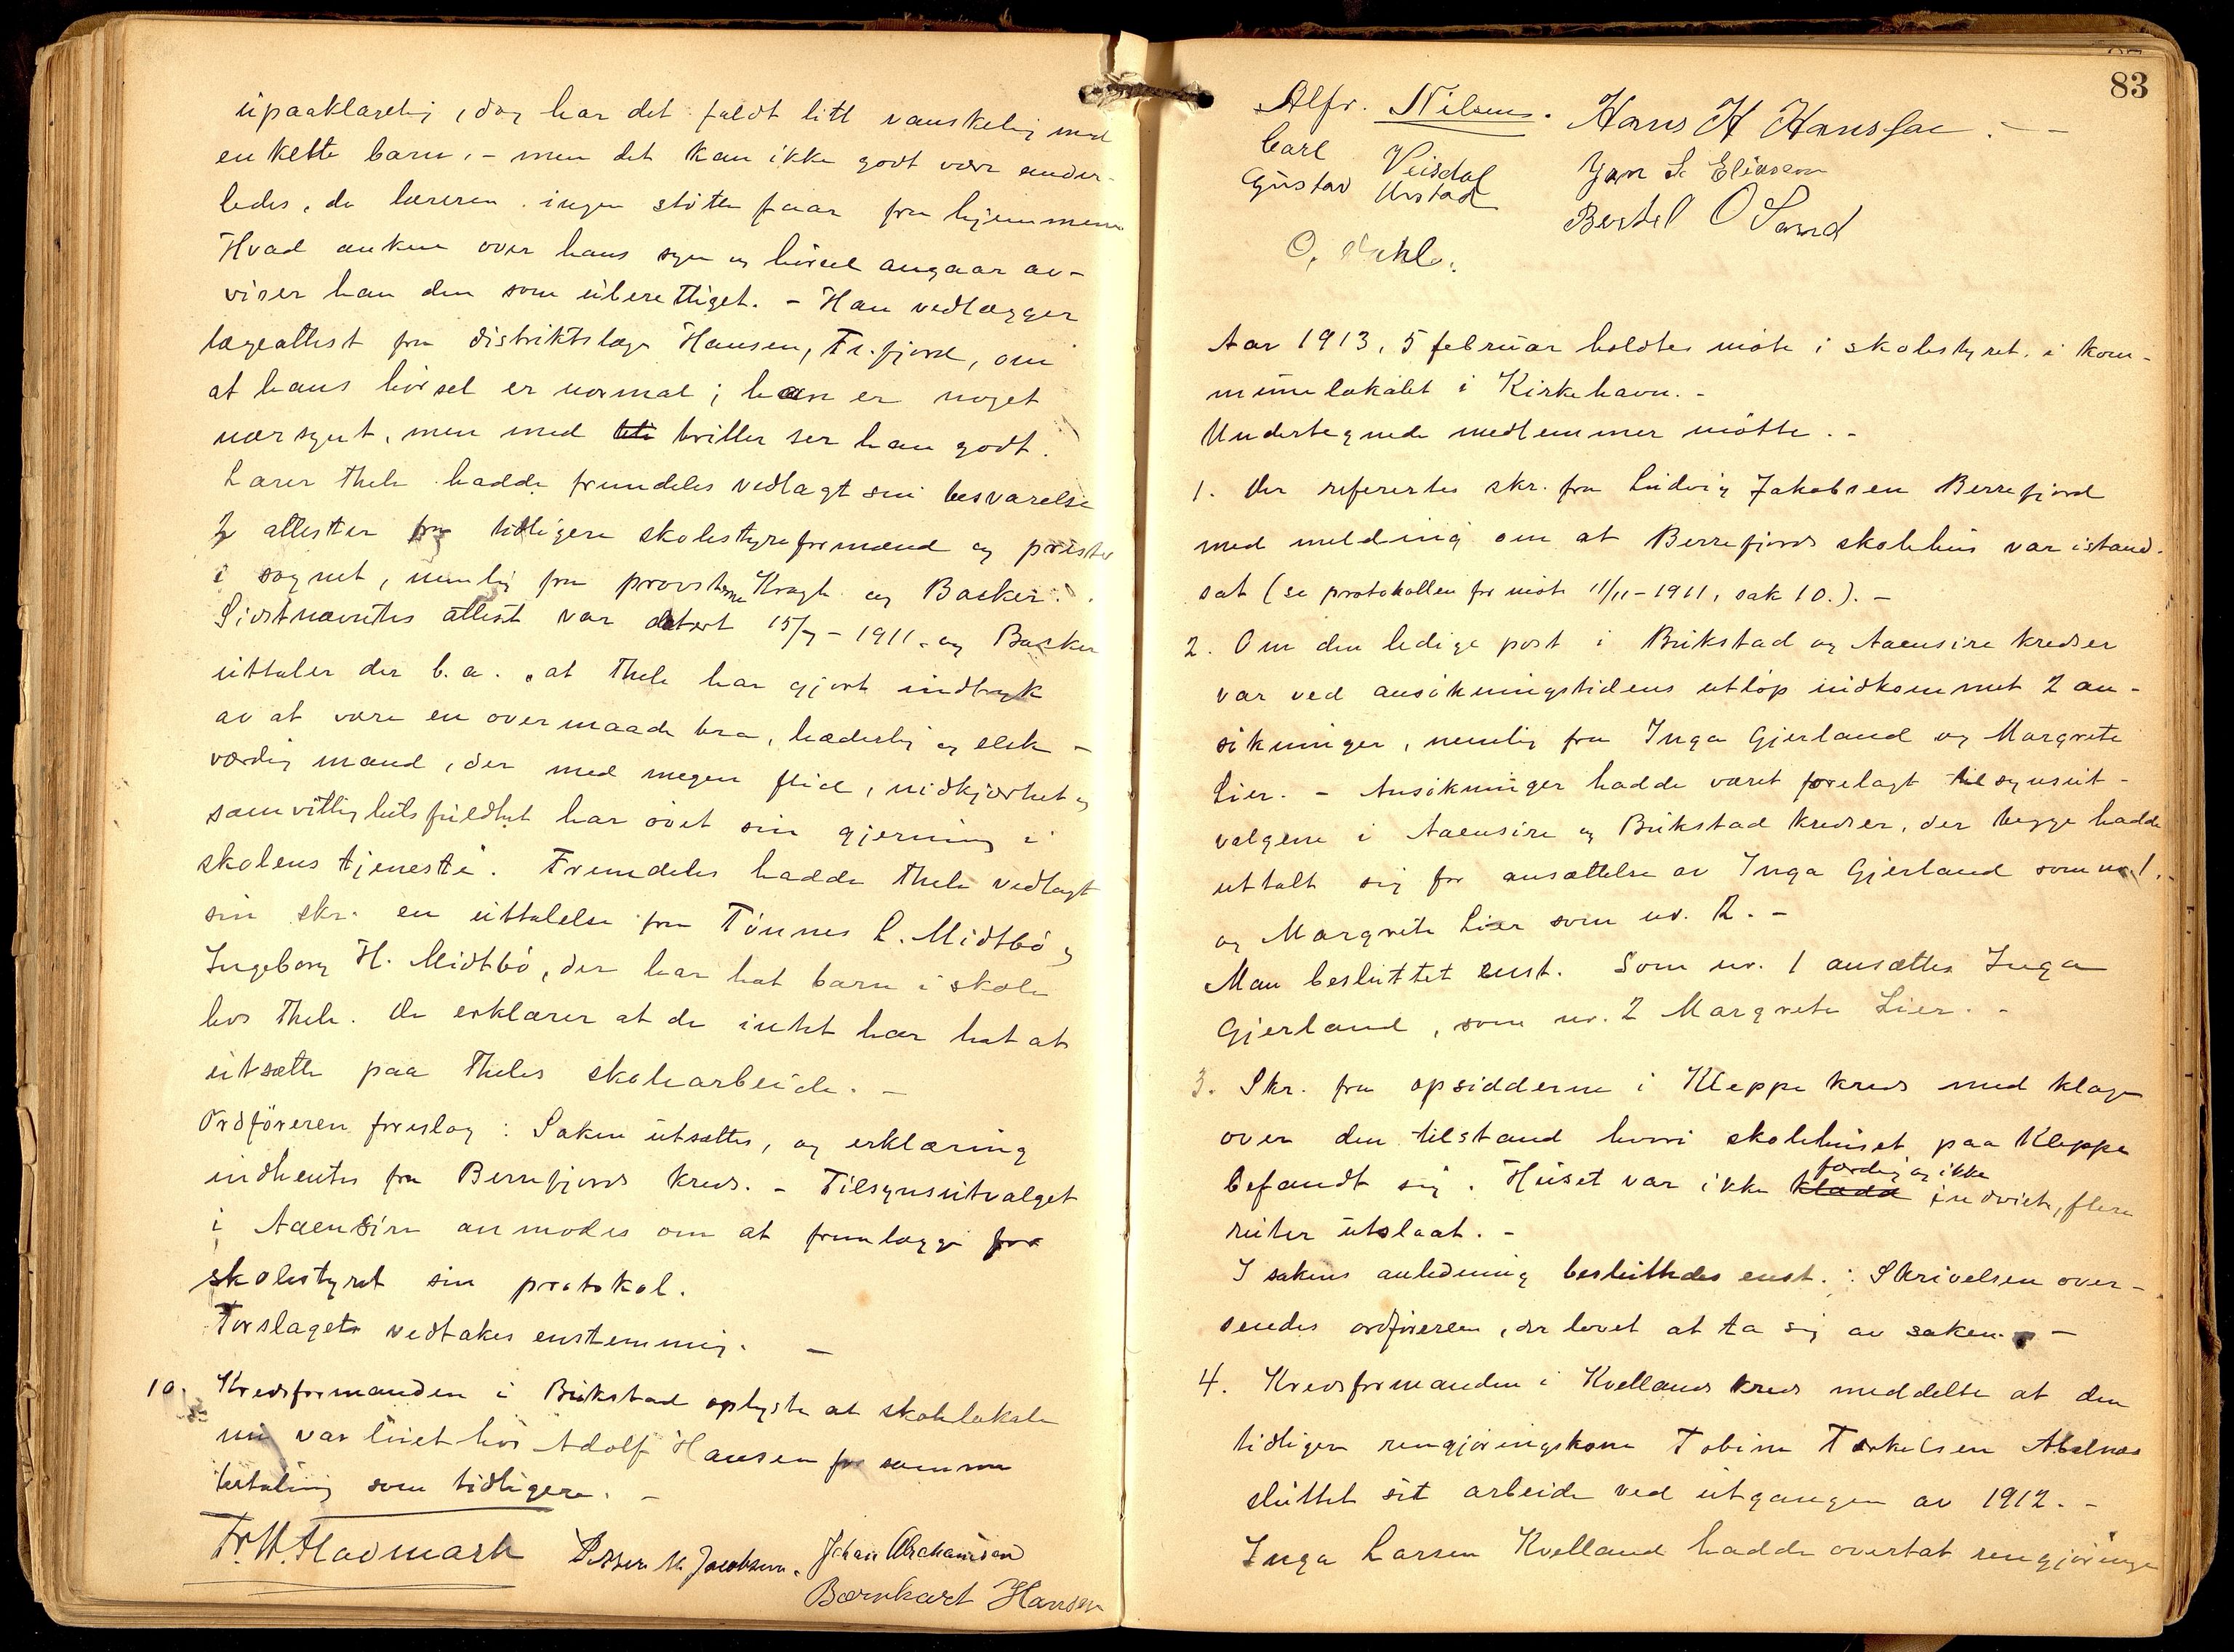 upaaklagelig, dog har det faldt litt vanskelig med
enkelte barn, - men det kan ikke godt være ander-
ledes, da læreren ingen støtte faar fra hjemmene
Hvad anken over hans syn og hørsel angaar av-
viser han den som uberettiget. - Han vedlægger
lægeattest fra distriktslæge Hansen, Fl.fjord, om
at hans hørsel er normal; han er noget
nærsynt, men med briller ser han godt.
Lærer Thele hadde fremdeles vedlagt sin besvarelse
2 attester fra tidligere skolestyreformænd og prester
i sognet, nemlig fra provsterne Kragh og Backer.
Sidstnævntes attest var datert 15/7 - 1911. og Backer
uttaler der b. a. „at Thele har gjort indtryk
av at være en overmaade bra, hæderlig og elsk-
værdig mand, der med megen flid, nidkjærhet og
samvittighetsfuldhet har øvet sin gjerning i
skolens tjeneste". Fremdeles hadde Thele vedlagt
sin skr. en uttalelse fra Tønnes L. Midtbø og
Ingeborg H. Midtbø, der har hat barn i skole
hos Thele. De erklærer at de intet har hat at
utsætte paa Theles skolearbeide. -
Ordføreren foreslog: Saken utsættes, og erklæring
indhentes fra Berrefjords kreds. - Tilsynsutvalget
i Aaensire anmodes om at fremlægge for
skolestyret sin protokol.
Forslaget vedtakes enstemmig. -
10. Kredsformanden i Bukstad oplyste at skolelokale
nu var leiet hos Adolf Hansen for samme
betaling som tidligere. -
Fr. W. Stadmark Peder M. Jacobsen. Johan Abrahamsen
Bærnhart Hansen
83
Alfr. Nilsen. Hans H Hanssen. -
Carl Veisdal Jan S. Eliassen
Gustav Urstad Bertel O Sand
O. Dahl.
Aar 1913, 5 februar holdtes møte i skolestyret i kom-
munelokalet i Kirkehavn. -
Undertegnede medlemmer møtte. -
1. Der refertes skr. fra Ludvig Jakobsen Berrefjord
med melding om at Berrefjords skolehus var istand-
sat (se protokollen for møte 11/11 - 1911, sak 10.). -
2. Om den ledige post i Bukstad og Aaensire kredser
var ved ansøkningstidens utløp indkommet 2 an-
søkninger, nemlig fra Inga Gjerland og Margrete
Lier. - Ansøkninger hadde været forelagt tilsynsut-
valgene i Aaensire og Bukstad kredser, der begge hadde
uttalt sig for ansættelse av Inga Gjerland som nr. 1.
og Margrete Lier som nr. 2. -
Man besluttet enst. Som nr. 1 ansættes Inga
Gjerland, som nr. 2 Margrete Lier. -
3. Skr. fra opsidderne i Kleppe kreds med klage
over den tilstand hvori skolehuset paa Kleppe
færdig og ikke
befandt sig. Huset var ikke kladd indviet, flere
ruter utslaat. -
I sakens anledning besluttedes enst.: Skrivelsen over-
sendes ordføreren, der lovet at ta sig av saken. -
4. Kredsformanden i Kvellands kreds meddelte at den
tidligere rengjøringskone Tobine Torkelsen Abelnes
sluttet sit arbeide ved utgangen av 1912. -
Inga Larsen Kvelland hadde overtat rengjøringen